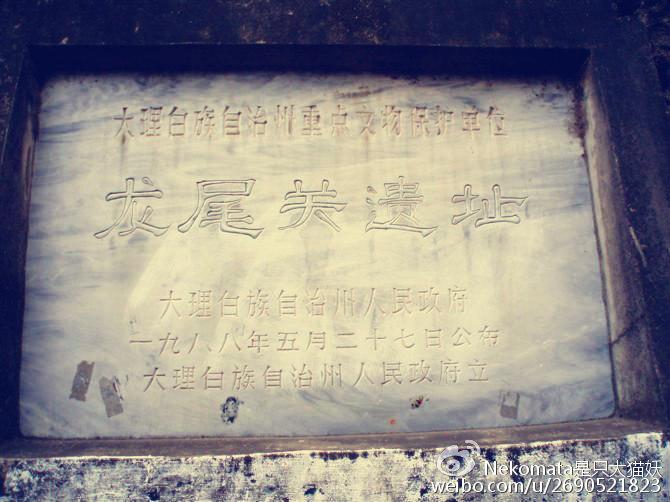 大理白族自治州重点文物保护单位
龙尾关遗址
大理白族自治州人民政府
一九八八年五月二十七日公布
大理白族自治州人民政府立
Nekomata是只大猫妖
weibo.com/u/2690521823